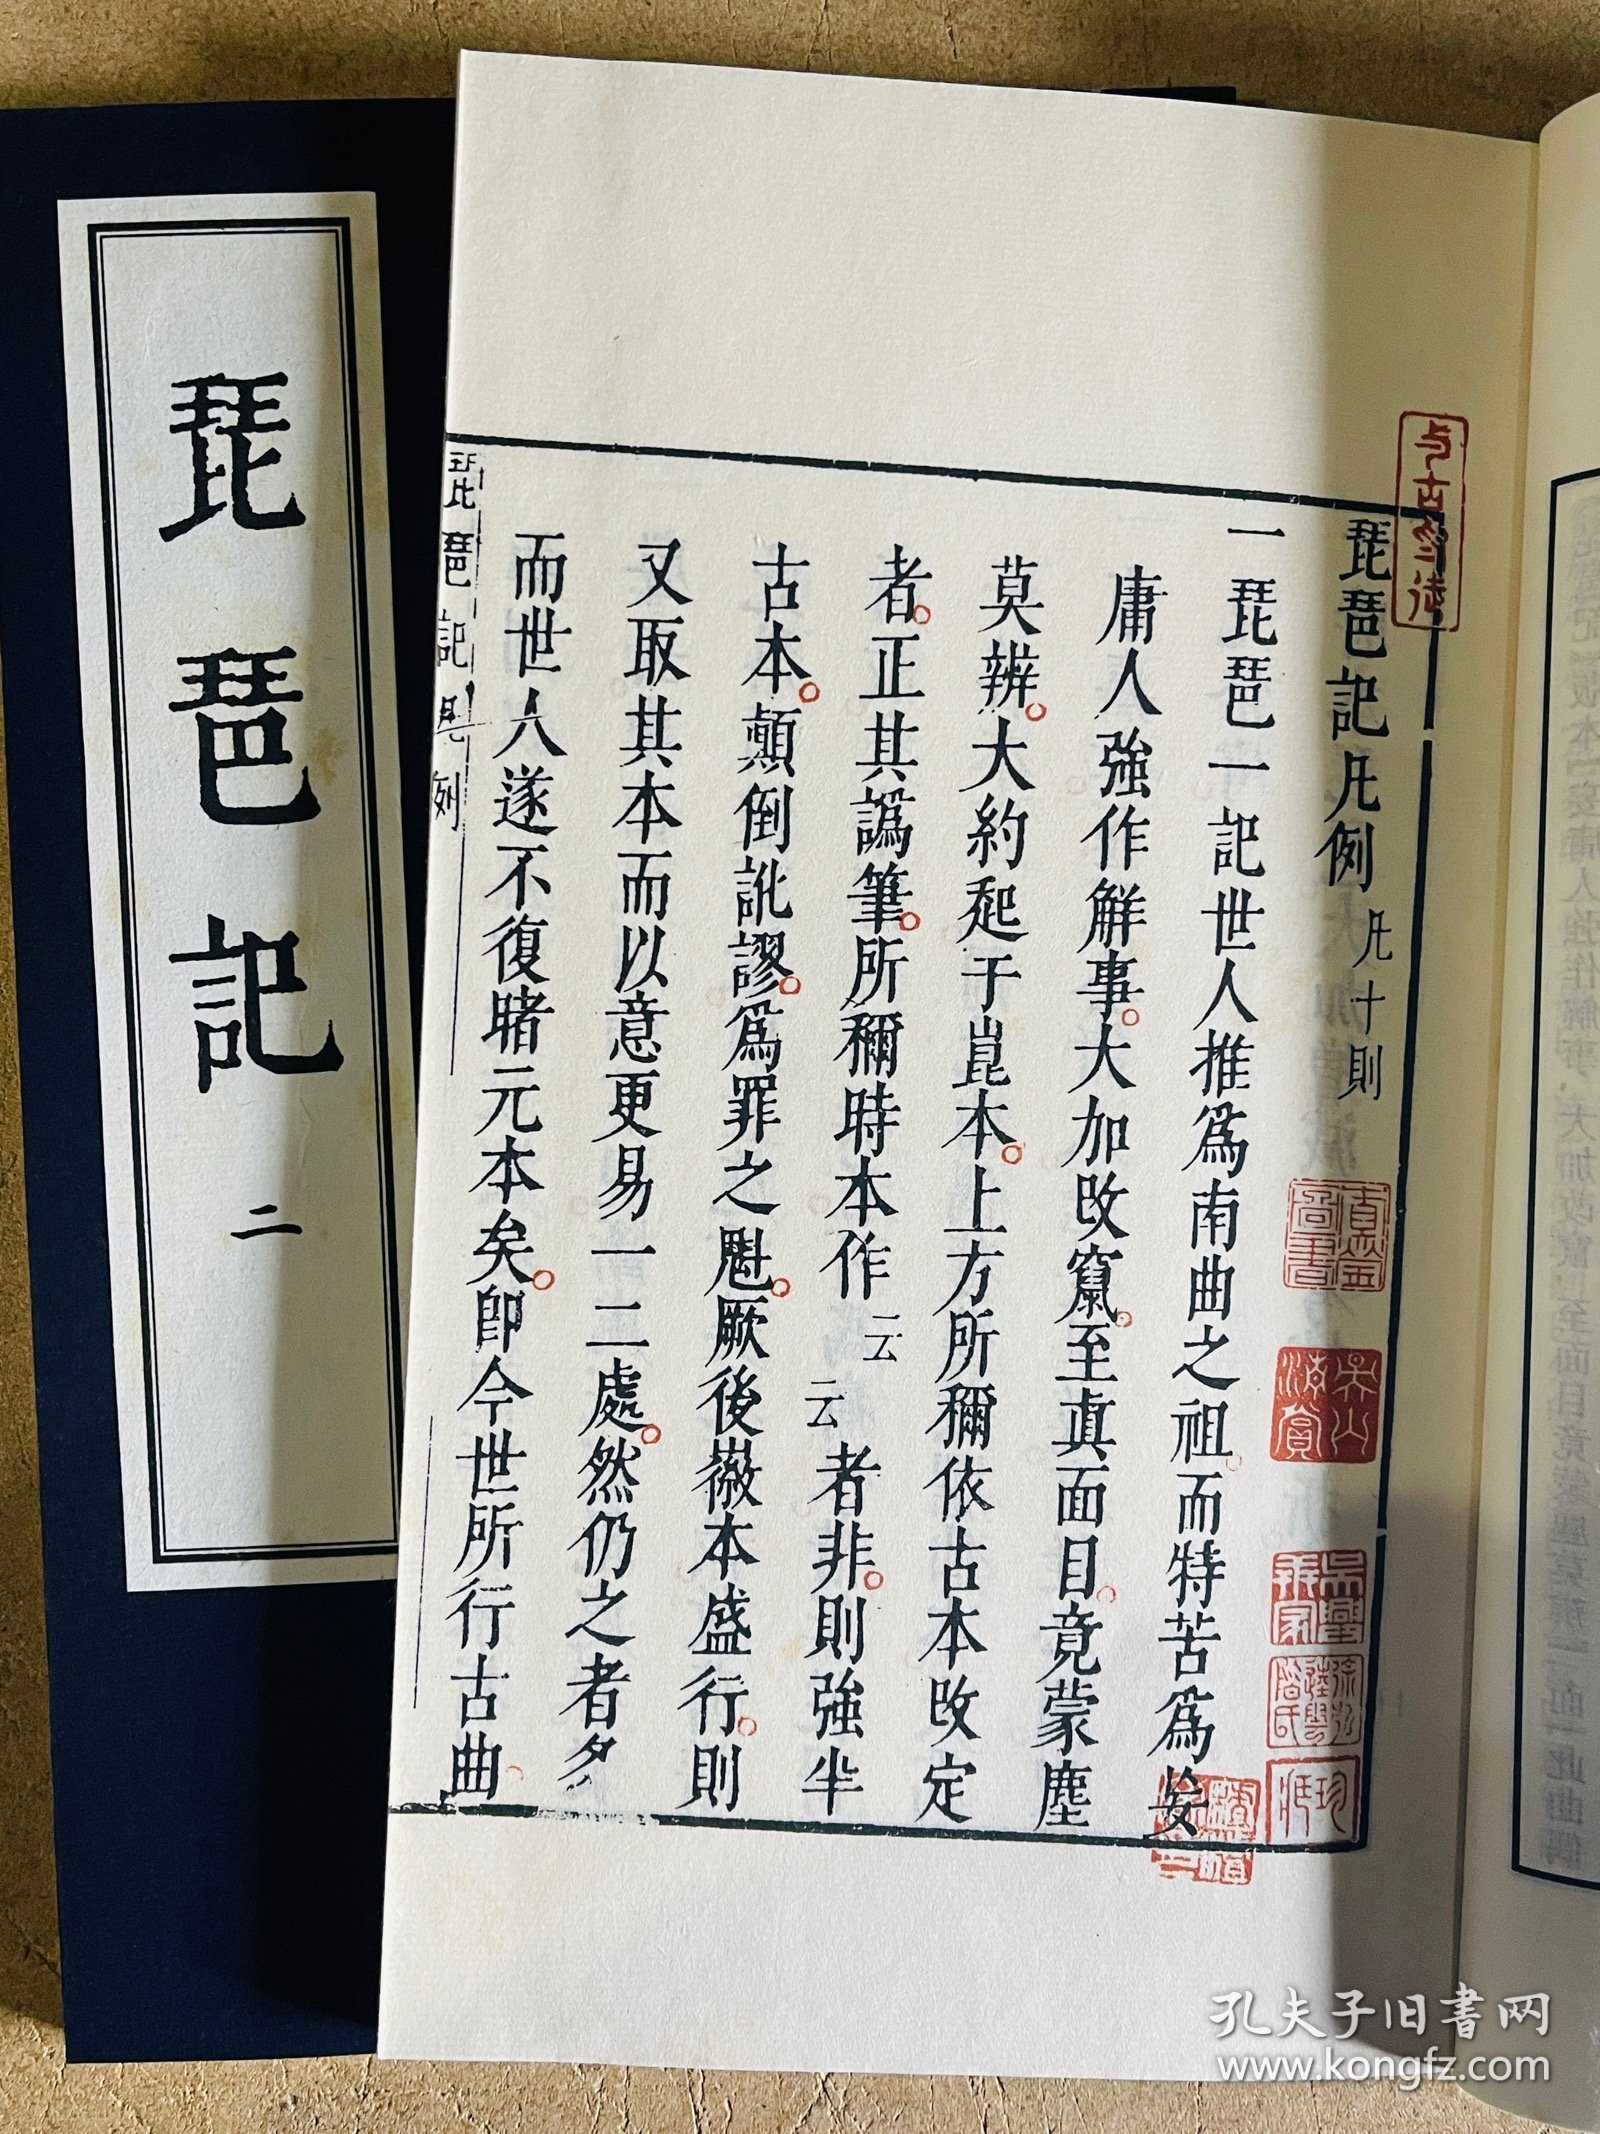 琵琶記凡例 凡十則
一琵琶一記世人推爲南曲之祖而特苦爲妄
庸人強作解事大加改竄至眞面目竟蒙塵
莫辨大約起于崑本上方所稱依古本改定
者正其譌筆所稱時本作云云者非則強半
古本顛倒訛謬爲罪之魁厥後徽本盛行則
又取其本而以意更易一二處然仍之者多
而世人遂不復睹元本矣卽今世所行古曲
琵琶記凡例
琵琶記
二
吳興
珍
孔夫子旧书网
www.kongfz.com